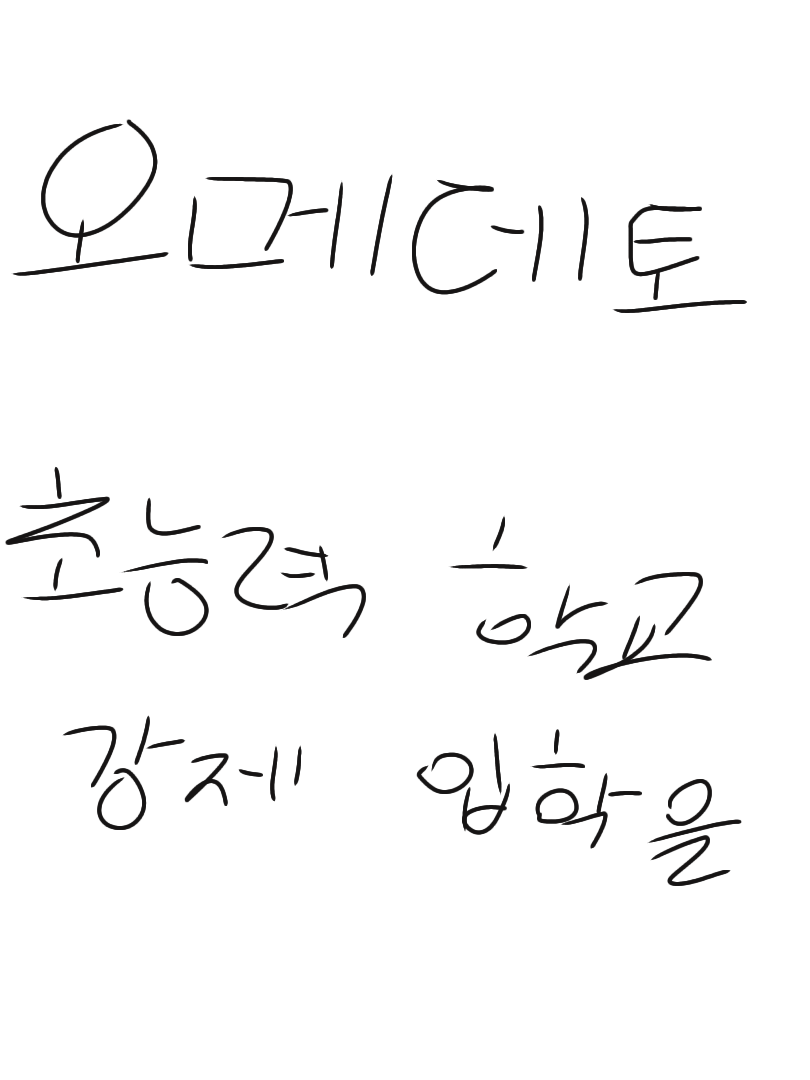 오메데토
초능력 학교
강제 입학을